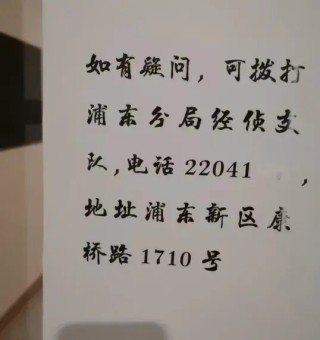 如有疑问，可拨打
浦东分局经侦支
队,电话22041    ,
地址浦东新区康
桥路1710号